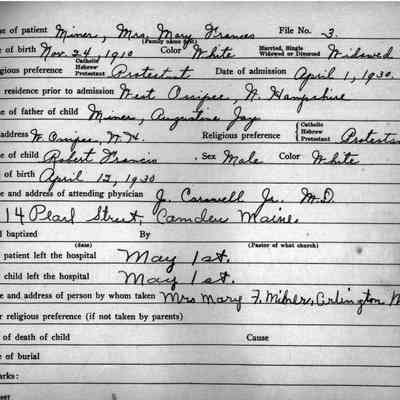 e of patient Miner, Mrs. Mary Frances File No. 3.
(Family name first)
e of birth Nov. 24, 1910 Color White Married, Single Widowed or Divorced Widowed
Catholic
Hebrew
gious preference Protestant Protestant Date of admission April 1, 1930.
residence prior to admission West Ossipee, N. Hampshire
e of father of child Miner, Augustine Jay
address W. Ossipee, N.H. Religious preference Catholic Hebrew Protestant Protestan
e of child Robert Francis . Sex Male Color White
of birth April 12, 1930
e and address of attending physician J. Carswell Jr. M.D.
14 Pearl Street, Camden Maine.
d baptized By
(date) (Pastor of what church)
patient left the hospital May 1st.
child left the hospital May 1st.
e and address of person by whom taken Mrs Mary F. Miner, Arlington M
r religious preference (if not taken by parents)
of death of child Cause
e of burial
arks: